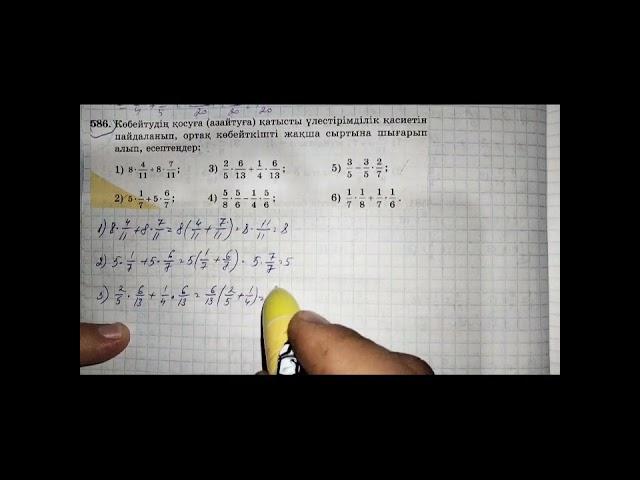 586. Көбейтудің қосуға (азайтуға) қатысты үлестірімділік қасиетін
пайдаланып, ортақ көбейткішті жақша сыртына шығарып
алып, есептеңдер:
1) 8·4/11+8·7/11; 3) 2/5·6/13+1/4·6/13; 5) 3/5-3/5·2/7;
2) 5·1/7+5·6/7; 4) 5/8·5/6-1/4·5/6; 6) 1/7·1/8+1/7·1/6.
1) 8·4/11+8·7/11=8(4/11+7/11)=8·11/11=8
2) 5·1/7+5·6/7=5(1/7+6/8)=5·7/7=5
3) 2/5·6/13+1/4·6/13=6/13(2/5+1/4)=